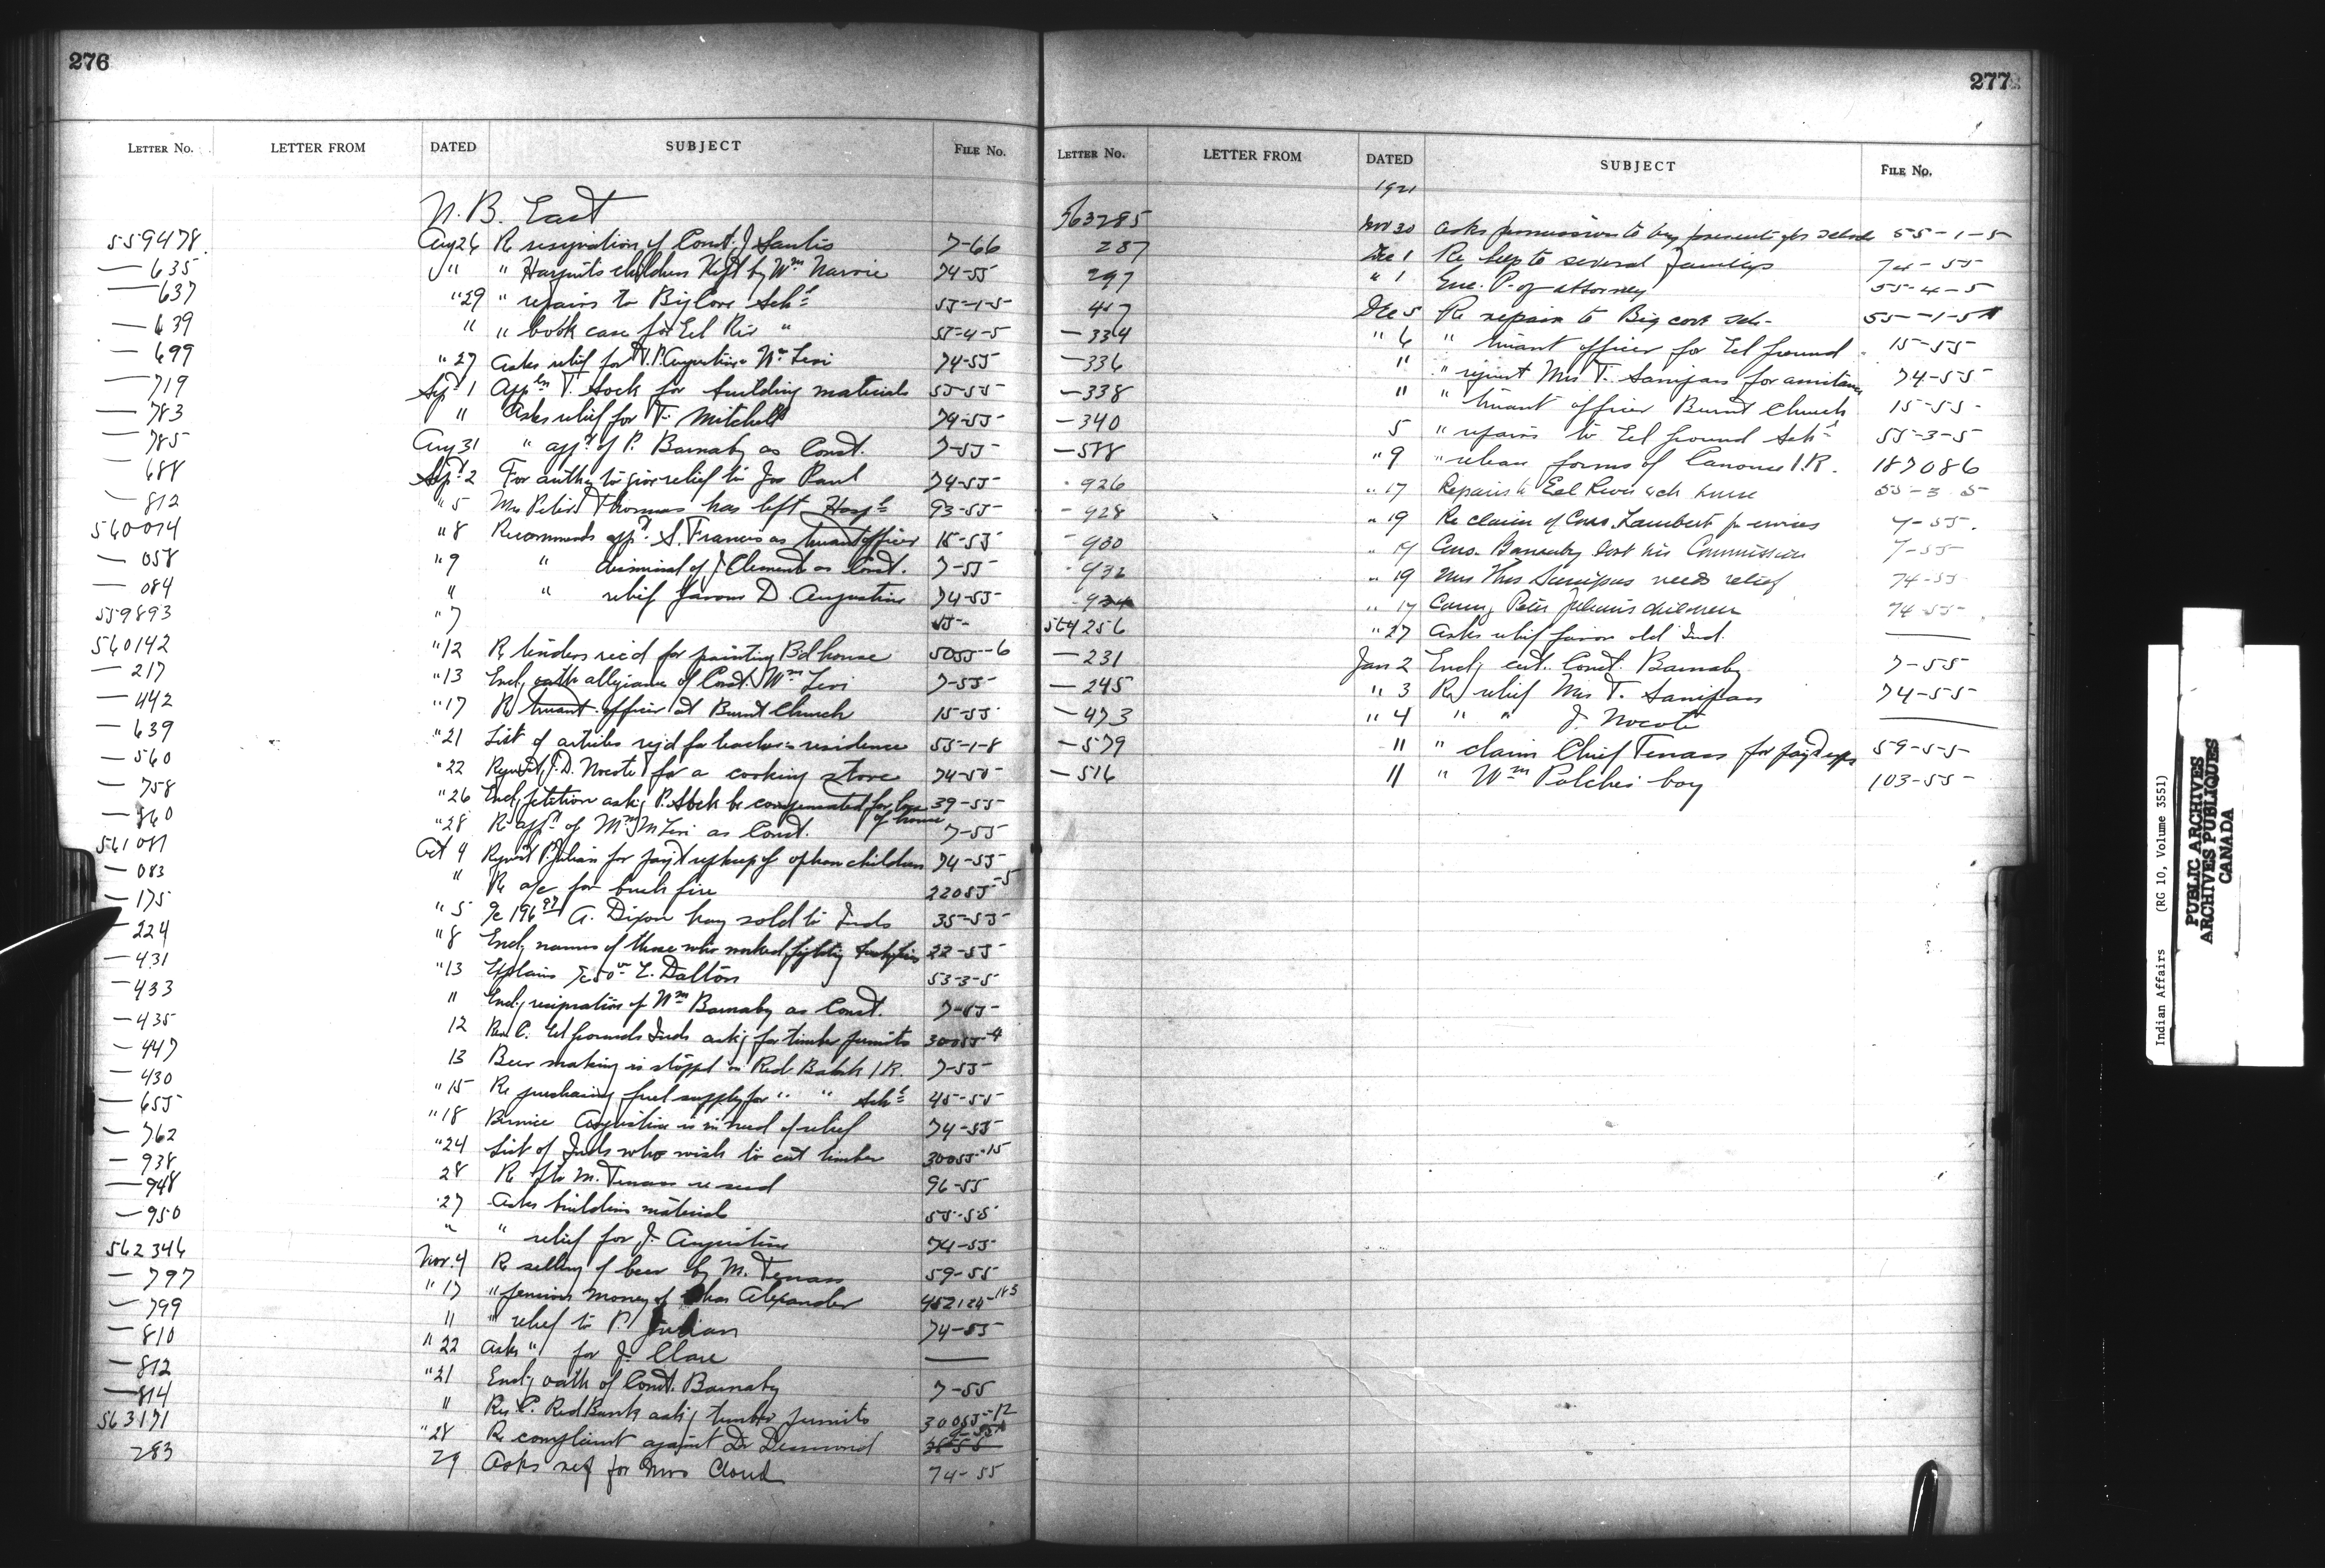 276
LETTER NO. LETTER FROM DATED SUBJECT FILE NO.
N. B. East
559478 Aug 26 Re resignation of Const. J Sanlis 7-66
— 635 " " children Kept by Wm Narvie 74-55
— 637 "29 " repairs to Big Cove Schl 55-1-5
— 639 " " book case for Eel Riv " 55-4-5
— 699 "27 Asks relief for Augustine Wm Levi 74-55
— 719 Sept 1 Appln T. Sock for building materials 55-55
— 783 " Asks relief for T. Mitchell 74-55
— 785 Aug 31 " appt of P. Barnaby as Const. 7-55
— 688 Sept 2 For authy to give relief to Jos Paul 74-55
— 812 "5 Mrs Peter Thomas has left Hospl 93-55
560074 "8 Recommends appt S. Francis as truant officer 15-55
— 058 "9 " dismissal of J Clement as Const. 7-55
— 084 " " relief favour D. Augustine 74-55
559893 "7 55-
560142 "12 Re tenders rec'd for painting Bd house 5055-6
— 217 "13 Encl; oath allegiance of Const. Wm Levi 7-55
— 442 "17 Re truant officer at Burnt Church 15-55
— 639 "21 List of articles reqd for teachers residence 55-1-8
— 560 "22 Request J. D. Nocote for a cooking stove 74-55
— 758 "26 Encl; petition askg P. Sock be compensated for loss of house 39-55
— 860 "28 Re appt of Wm Levi as Const. 7-55
561081 Oct 4 Request P. Julian for payt upkeep of orphan children 74-55
— 083 " Re a/c for bush fire 2205J-5
— 175 "5 A. Dixon hay sold to Inds 35-55
— 224 "8 Encl; names of those who worked fighting bush fires 22-55
— 431 "13 Explains E. Dalton 53-3-5
— 433 " Encl; resignation of Wm Barnaby as Const. 7-55
— 435 12 Res C. Eel Grounds Inds askg for timber permits 30055-4
— 447 13 Beer making is stopped on Red Bank I R. 7-55
— 430 "15 Re purchasing fuel supply for " " Schl 45-55
— 655 "18 Bernice Augustine is in need of relief 74-55
— 762 "24 List of Inds who wish to cut timber 30055-15
— 938 28 Re M. Tenass re seed 96-55
— 948 "27 Asks building material 55-55
— 950 " " relief for J. Augustine 74-55
562346 Nov. 4 Re selling of beer by M. Tenass 59-55
— 797 "17 " pension money of Chas Alexander 452124-183
— 799 " " relief to P. Julian 74-55
— 810 "22 Asks " for J. Clare ——
— 812 "21 Encl; oath of Const. Barnaby 7-55
— 814 " Res C. Red Bank askg timber permits 30055-12
563171 "28 Re complaint against Dr Desmond
283 29 Asks rel for Mrs Cloud 74-55
277
LETTER NO. LETTER FROM DATED SUBJECT FILE NO.
1921
563285 Nov 30 Asks permission to buy presents for schools 55-1-5
287 Dec 1 Re help to several families 74-55
297 " 1 Enc. P. of attorney 55-4-5
417 Dec 5 Re repair to Big cove sch- 55-1-5
— 334 " 6 " truant officer for Eel ground 15-55
— 336 " " request Mrs T. Sanipass for assistance 74-55
— 338 " " truant officer Burnt Church 15-55
— 340 5 " repairs to Eel ground Schl 55-3-5
— 588 "9 " release forms of Canouse I.R. 187086
926 "17 Repairs to Eel River sch house 55-3-5
— 928 "19 Re claim of Cons. Lambert for services 7-55.
930 "19 Cons. Barnaby lost his Commission 7-55
932 "19 Mrs Thos Sanipas needs relief 74-55
934 "17 Caring Peter Julian's children 74-55
564256 "27 Asks relief favour old Ind. ——
— 231 Jan 2 Encl; cert. Const. Barnaby 7-55
— 245 " 3 Re relief Mrs T. Sanipass 74-55
— 473 " 4 " " J. Nocote ——
— 579 " " claim Chief Tenass for payt exps 59-55
— 516 " " Wm Polchies boy 103-55
Indian Affairs (RG 10, Volume 3551)
PUBLIC ARCHIVES
ARCHIVES PUBLIQUES
CANADA